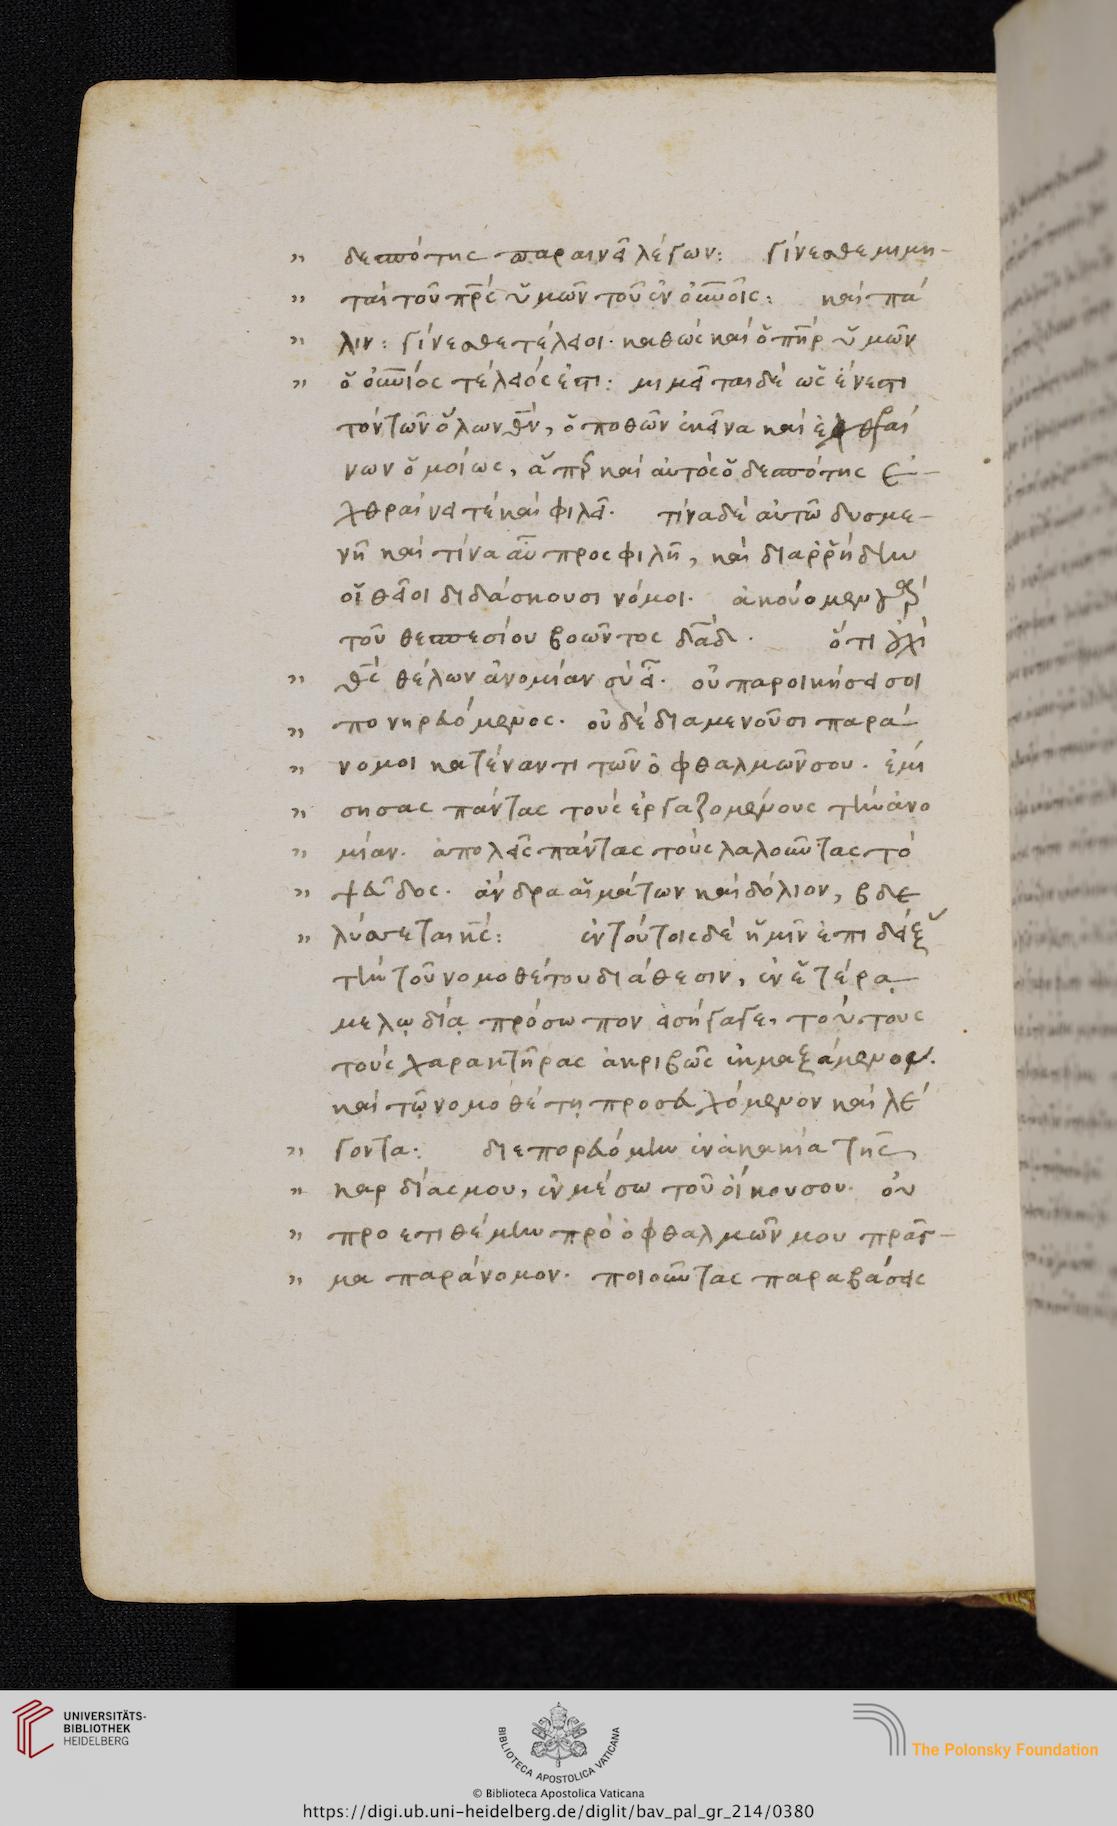 „ δεσπότης παραινεῖ λέγων: γίνεσθε μιμη-
„ ταὶ τοῦ π̅ρ̅ς ὑμῶν τοῦ ἐν οὐνοῖς: καὶ πά
„ λιν: γίνεσθε τέλειοι· καθὼς καὶ ὁ π̅η̅ρ ὑμῶν
„ ὁ οὐνιος τέλειός ἐστι: μιμεῖται δὲ ὡς ἔνεστι
τὸν τῶν ὅλων θ̅ν̅, ὁ ποθῶν ἐκεῖνα καὶ ἐχθραί
νων ὁμοίως, ἅπερ καὶ αὐτὸς ὁ δεσπότης ἐ-
χθραίνει τὲ καὶ φιλεῖ· τίνα δὲ αὐτῶ δυσμε-
νῆ καὶ τίνα αὖ προσφιλῆ, καὶ διαῤῥήδην
οἱ θεῖοι διδάσκουσι νόμοι· ἀκούομεν γὰρ
τοῦ θεσπεσίου βοῶντος δ̅α̅δ̅· ὅτι οὐχὶ
„ θ̅ς̅ θέλων ἀνομίαν σὺ εἶ· οὐ παροικήσει σοι
„ πονηρευόμενος· οὐδὲ διαμενοῦσι παρά-
„ νομοι κατέναντι τῶν ὀφθαλμῶν σου· ἐμί
„ σησας πάντας τοὺς ἐργαζομένους τὴν ἀνο
„ μίαν· ἀπολεῖς πάντας τοὺς λαλοῦντας τὸ
„ ψεῦδος· ἄνδρα αἱμάτων καὶ δόλιον, βδε
„ λύσσεται κ̅ς̅: ἐν τούτοις δὲ ἡμῖν ἐπιδείξας
τὴν τοῦ νομοθέτου διάθεσιν, ἐν ἑτέρᾳ
μελῳδίᾳ πρόσωπον εἰσήγαγε, τούτους
τοὺς χαρακτῆρας ἀκριβῶς ἐκμαξάμενον·
καὶ τῷ νομοθέτῃ προσευχόμενον καὶ λέ
„ γοντα: διεπορευόμην ἐν ἀκακία τῆς
„ καρδίας μου, ἐν μέσω τοῦ οἴκου σου· οὐ
„ προετιθέμην πρὸ ὀφθαλμῶν μου πρᾶγ-
„ μα παράνομον· ποιοῦντας παραβάσεις
UNIVERSITÄTS-
BIBLIOTHEK
HEIDELBERG
BIBLIOTECA APOSTOLICA VATICANA
The Polonsky Foundation
© Biblioteca Apostolica Vaticana
https://digi.ub.uni-heidelberg.de/diglit/bav_pal_gr_214/0380